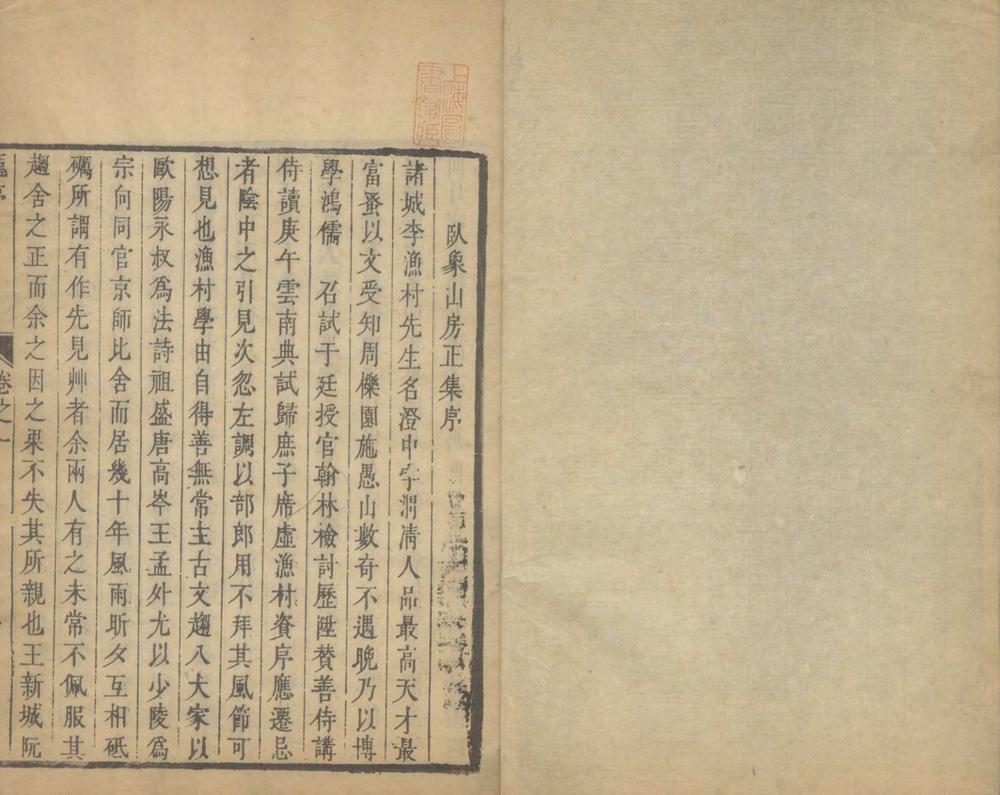 上海圖
書館臧
臥象山房正集序
諸城李漁村先生名澄中字渭清人品最高天才最
富蚤以文受知周櫟園施愚山數奇不遇晚乃以博
學鴻儒 召試于廷授官翰林檢討歷陞贊善侍講
侍讀庚午雲南典試歸庶子席虛漁村資序應遷忌
者陰中之引見次忽左調以部郎用不拜其風節可
想見也漁村學由自得善無常主古文趨八大家以
歐陽永叔爲法詩祖盛唐高岑王孟外尤以少陵爲
宗向同官京師比舍而居幾十年風雨昕夕互相砥
礪所謂有作先見艸者余兩人有之未常不佩服其
趨舍之正而余之因之果不失其所親也王新城阮
卷之一